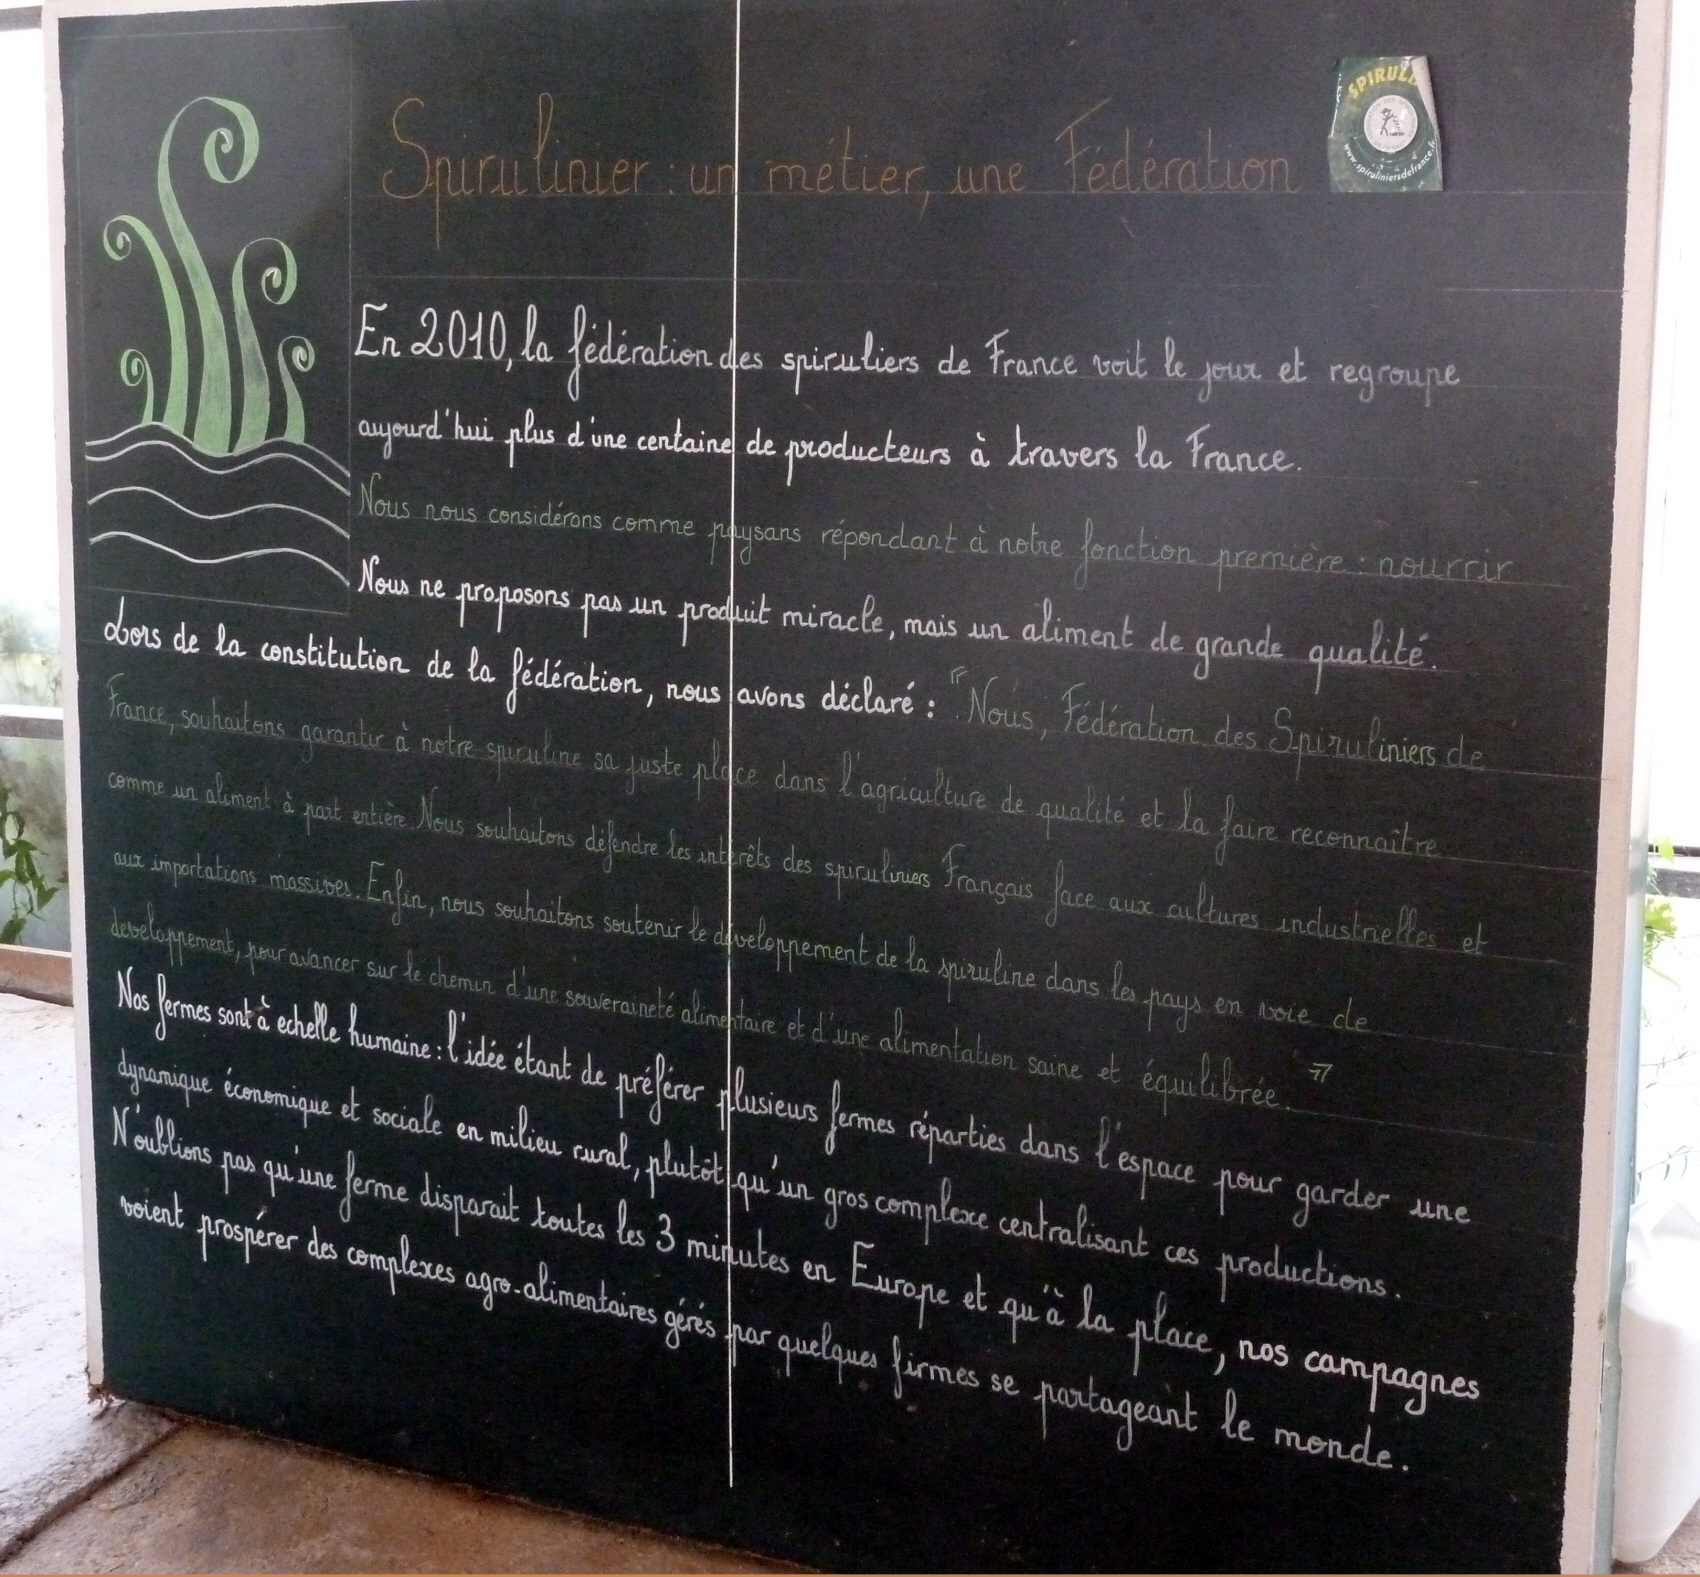 Spirulinier : un métier, une Fédération
SPIRUL
www.spiruliniersdefrance.fr
En 2010, la fédération des spiruliers de France voit le jour et regroupe
aujourd'hui plus d'une centaine de producteurs à travers la France.
Nous nous considérons comme paysans répondant à notre fonction première : nourrir
Nous ne proposons pas un produit miracle, mais un aliment de grande qualité.
Lors de la constitution de la fédération, nous avons déclaré : "Nous, Fédération des Spiruliniers de
France, souhaitons garantir à notre spiruline sa juste place dans l'agriculture de qualité et la faire reconnaître
comme un aliment à part entière. Nous souhaitons défendre les intérêts des spiruliniers Français face aux cultures industrielles et
aux importations massives. Enfin, nous souhaitons soutenir le développement de la spiruline dans les pays en voie de
développement, pour avancer sur le chemin d'une souveraineté alimentaire et d'une alimentation saine et équilibrée. "
Nos fermes sont à echelle humaine : l'idée étant de préférer plusieurs fermes réparties dans l'espace pour garder une
dynamique économique et sociale en milieu rural, plutôt qu'un gros complexe centralisant ces productions.
N'oublions pas qu'une ferme disparait toutes les 3 minutes en Europe et qu'à la place, nos campagnes
voient prospérer des complexes agro-alimentaires gérés par quelques firmes se partageant le monde.